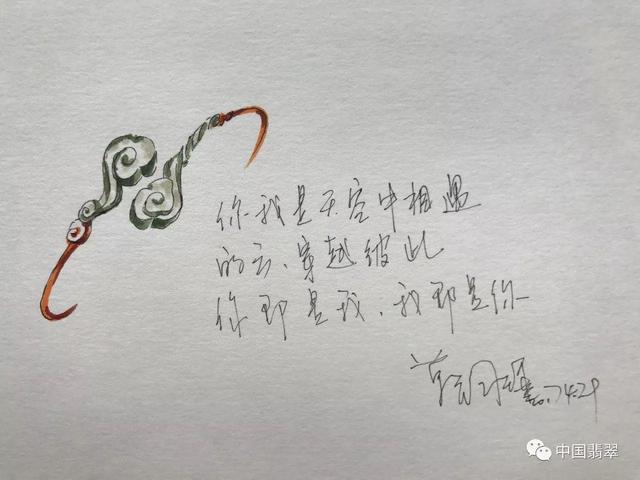 你我是天空中相遇
的云、穿越彼此
你即是我、我即是你
中国翡翠